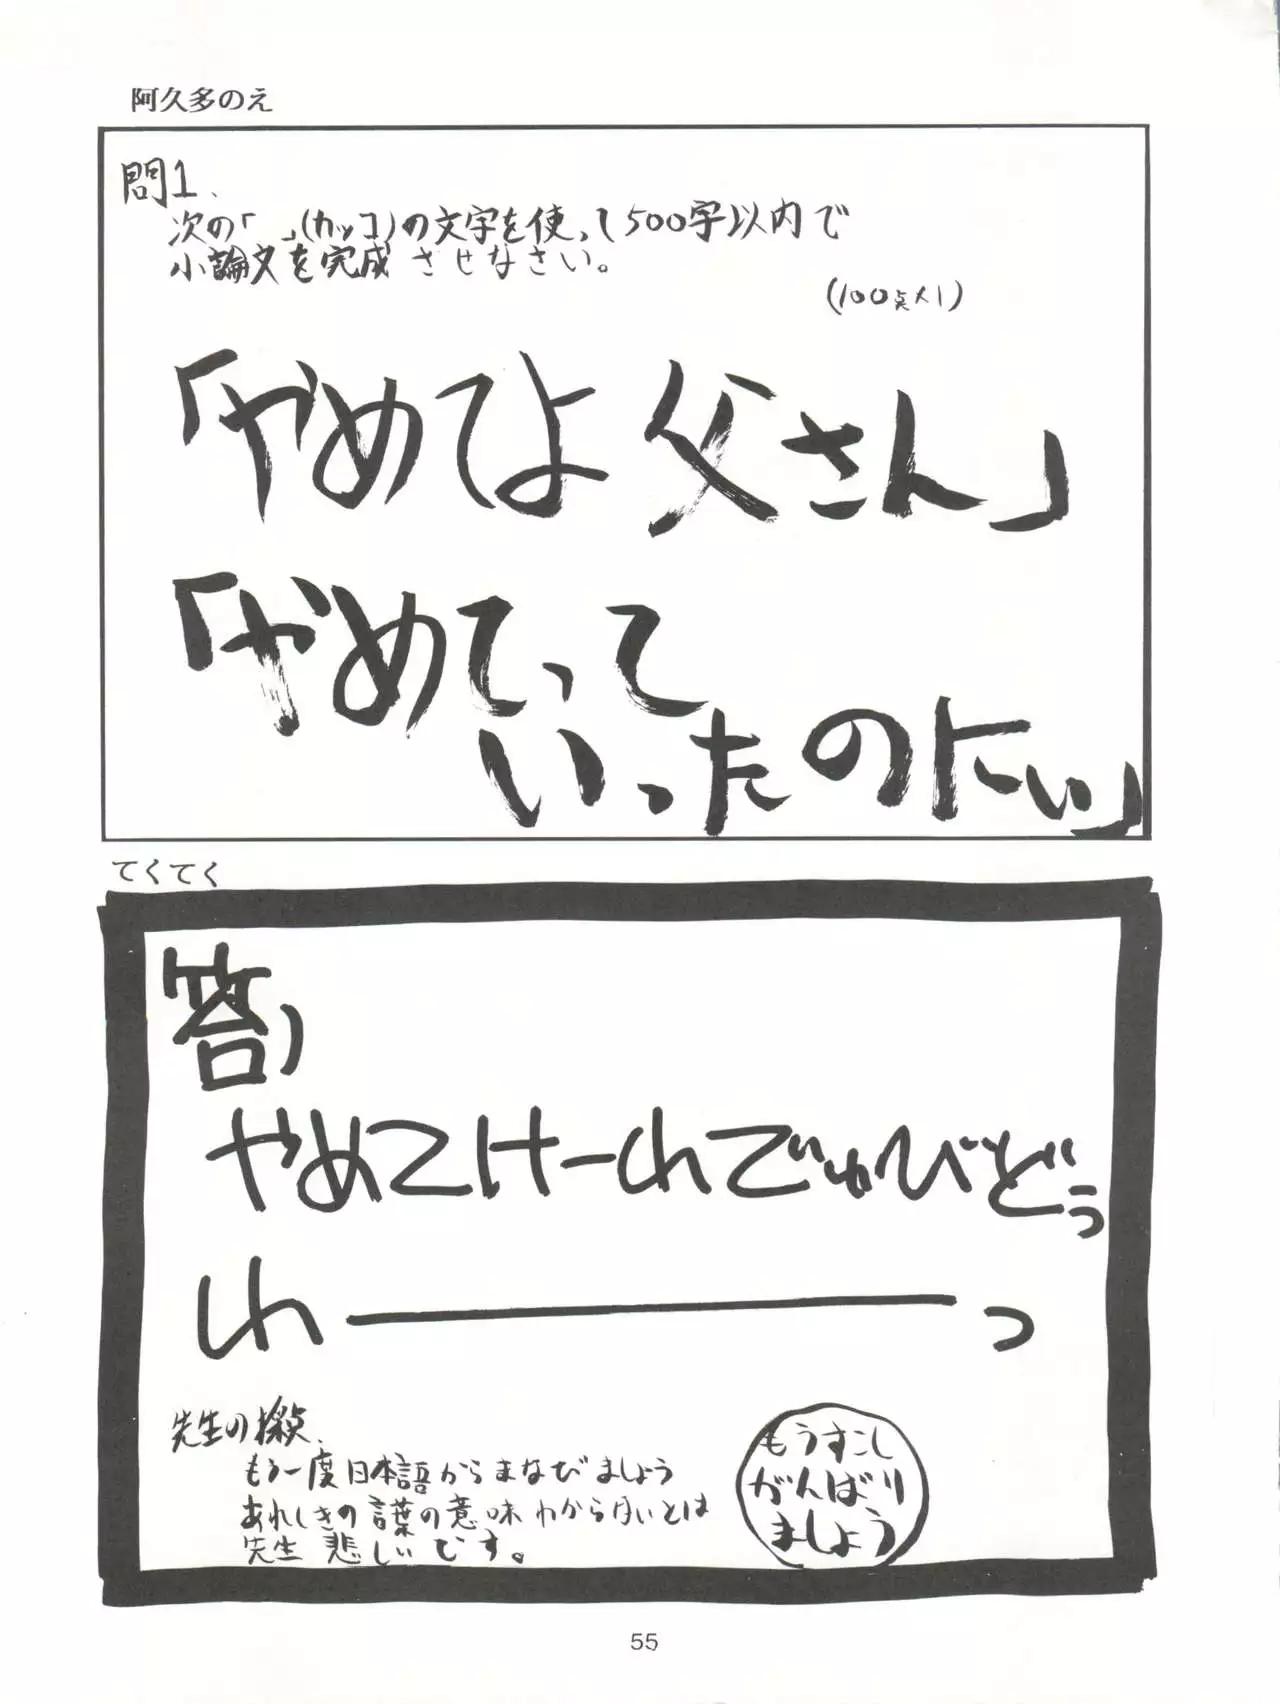 阿久多のえ
問1、
次の「　」(カッコ)の文字を使って500字以内で
小論文を完成させなさい。
(100点×1)
「やめてよ 父さん」
「やめてって
いったのにぃ」
てくてく
答)
やめてけーれでぃゅびどぅ
れーっ
先生の採点、
もう一度日本語からまなびましょう
あれしきの言葉の意味わからないとは
先生 悲しいです。
もうすこし
がんばり
ましょう
55